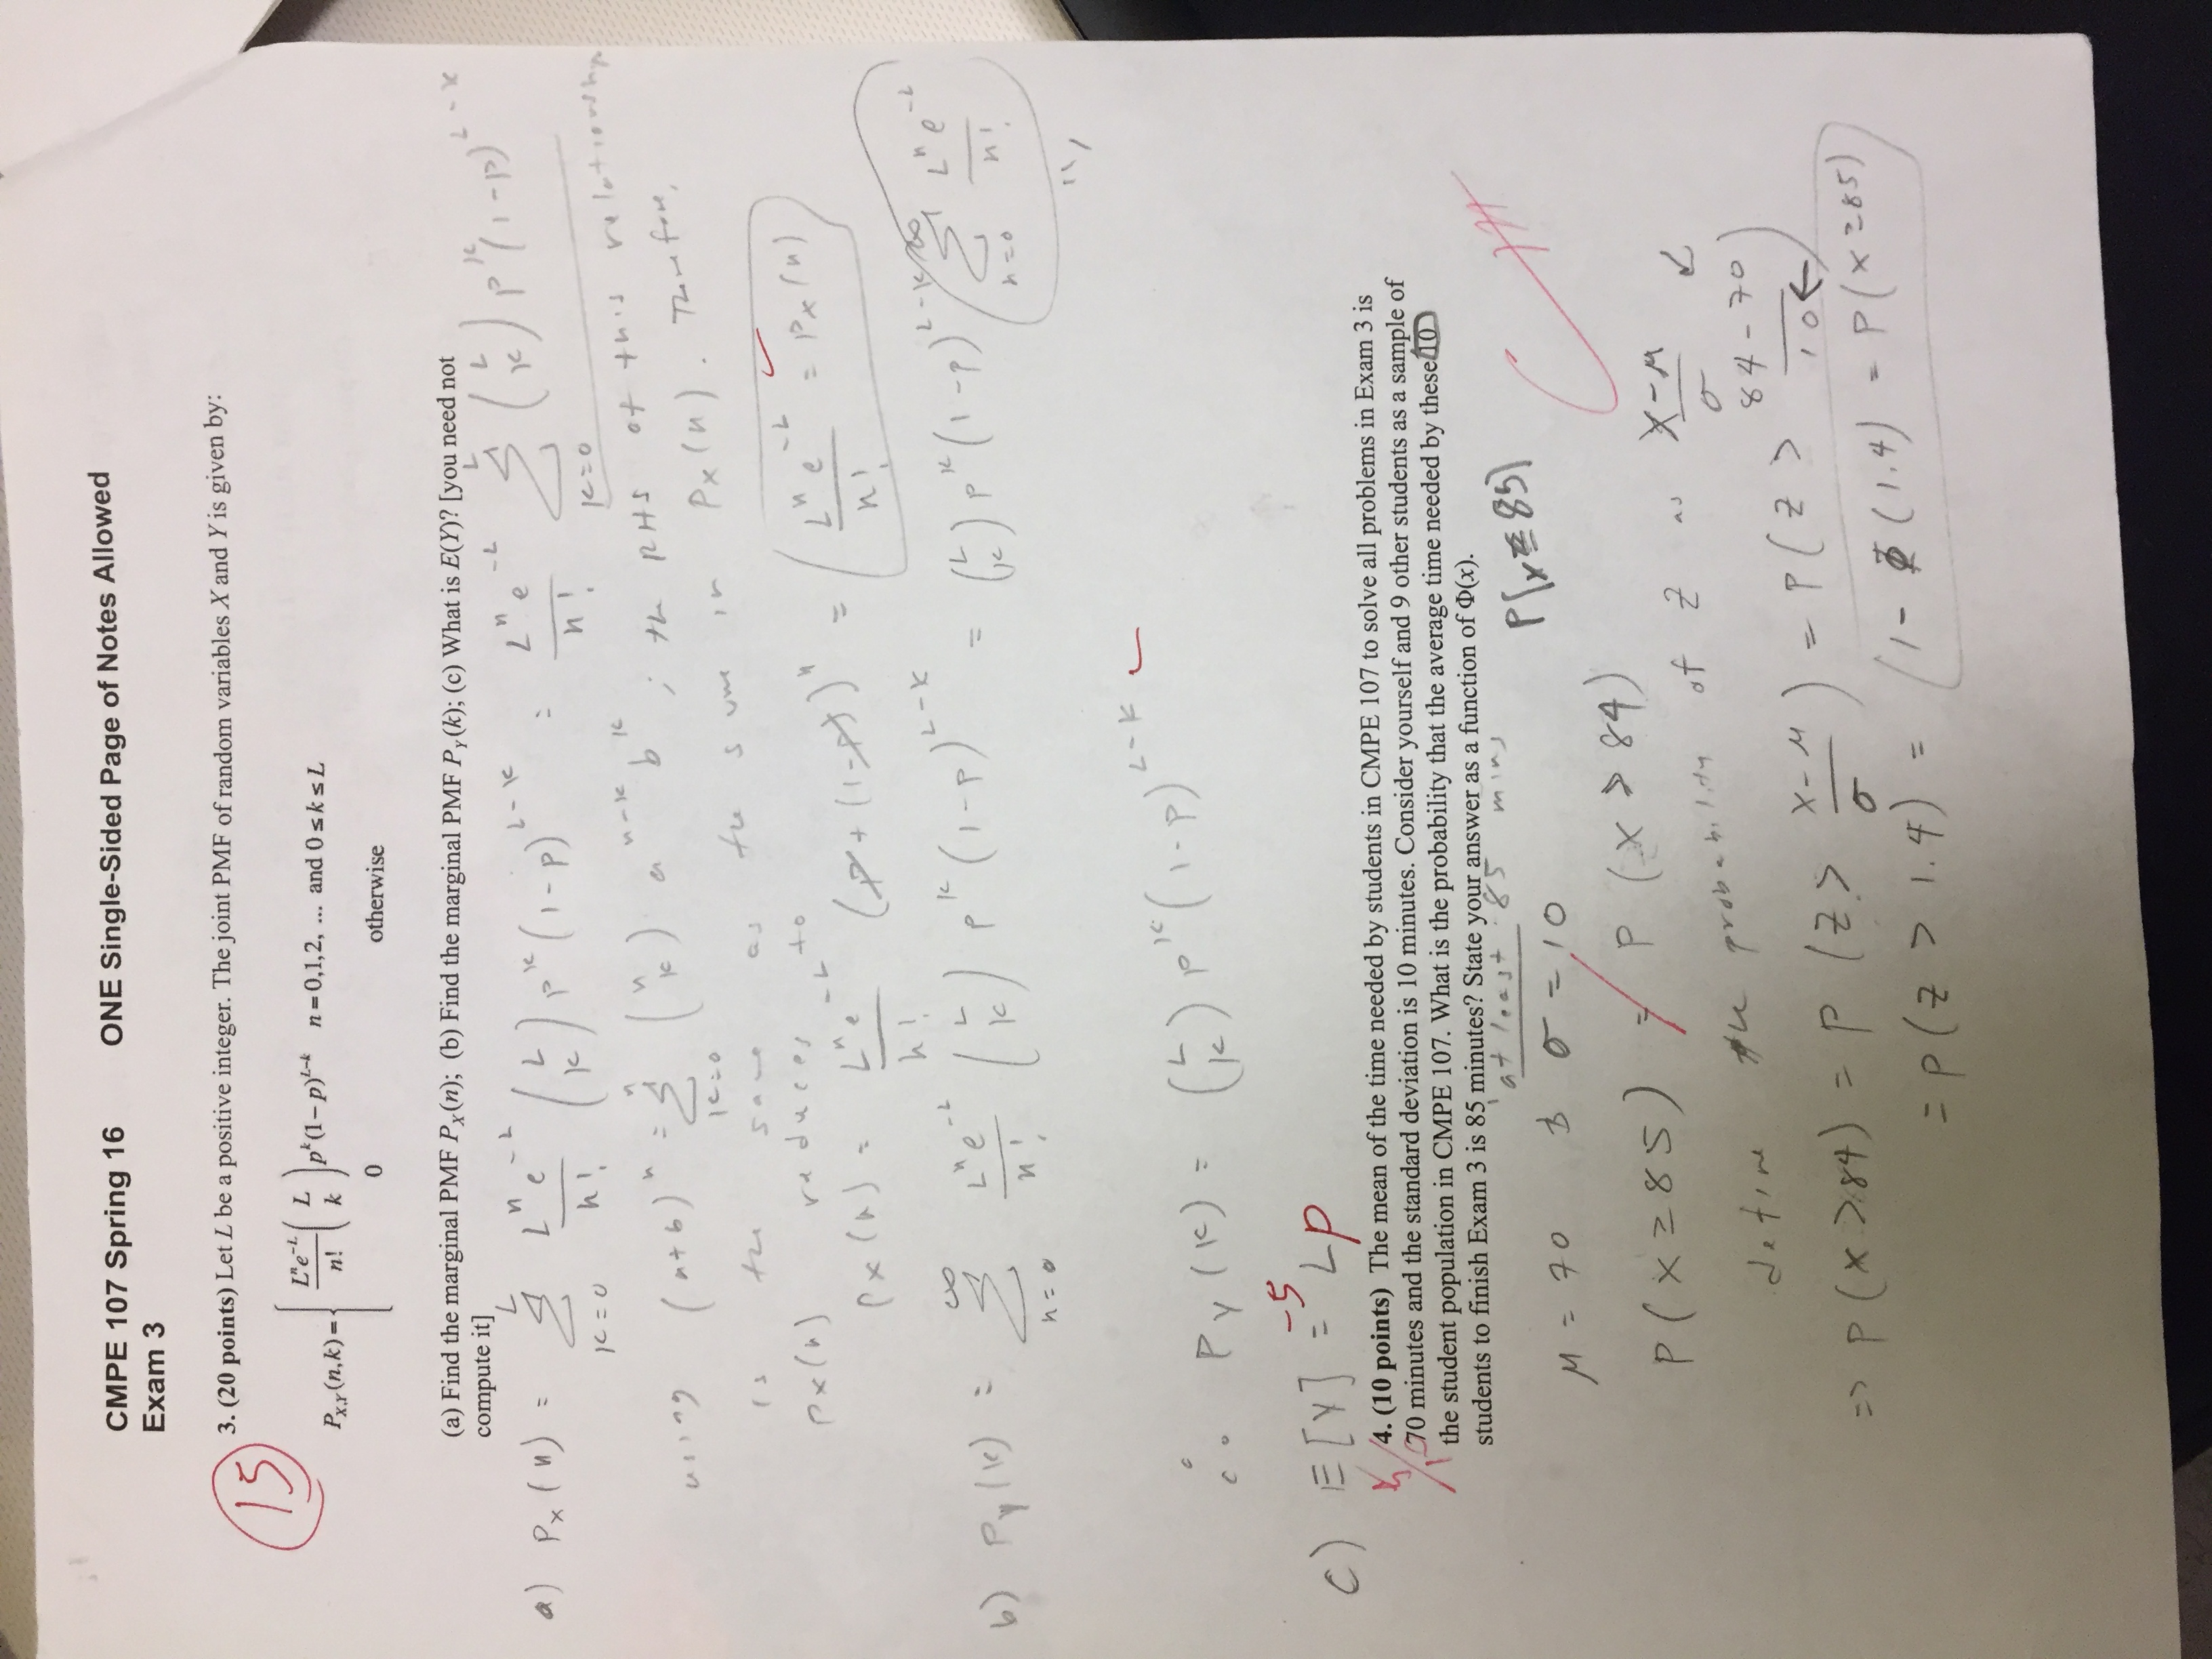 CMPE 107 Spring 16 ONE Single-Sided Page of Notes Allowed
Exam 3
15
3. (20 points) Let L be a positive integer. The joint PMF of random variables X and Y is given by:
P_{X,Y}(n,k) = { L^n e^{-L} / n! (L k) p^k (1-p)^{L-k} n = 0,1,2, ... and 0 ≤ k ≤ L
0 otherwise
(a) Find the marginal PMF P_X(n); (b) Find the marginal PMF P_Y(k); (c) What is E(Y)? [you need not
compute it]
a) P_X(n) = Σ_{k=0}^{L} L^n e^{-L} / n! (L k) p^k (1-p)^{L-k} = L^n e^{-L} / n! Σ_{k=0}^{L} (L k) p^k (1-p)^{L-k}
using (a+b)^n = Σ_{k=0}^{n} (n k) a^{n-k} b^k ; the RHS of this relationship
is the same as the sum in P_X(n). Therefore,
P_X(n) reduces to
P_X(n) = L^n e^{-L} / n! (p + (1-p))^n = L^n e^{-L} / n! = P_X(n)
b) P_Y(k) = Σ_{n=0}^{∞} L^n e^{-L} / n! (L k) p^k (1-p)^{L-k} = (L k) p^k (1-p)^{L-k} Σ_{n=0}^{∞} L^n e^{-L} / n!
∴ P_Y(k) = (L k) p^k (1-p)^{L-k}
-5
c) E[Y] = Lp
4. (10 points) The mean of the time needed by students in CMPE 107 to solve all problems in Exam 3 is
70 minutes and the standard deviation is 10 minutes. Consider yourself and 9 other students as a sample of
the student population in CMPE 107. What is the probability that the average time needed by these 10
students to finish Exam 3 is 85 minutes? State your answer as a function of Φ(x).
at least 85 mins
μ = 70 σ = 10
P(X ≥ 85) = P(X > 84)
define the probability of Z as X-μ / σ
=> P(X > 84) = P(Z > X-μ / σ) = P(Z > 84-70 / 10)
= P(Z > 1.4) = 1 - Φ(1.4) = P(X ≥ 85)